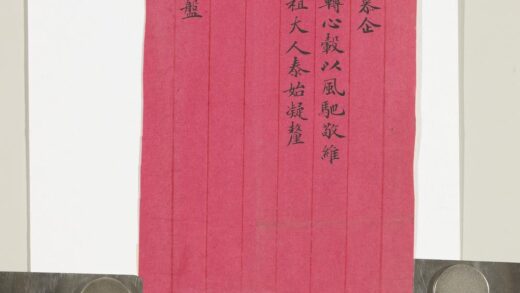 慕企
轉心轂以風馳敬維
祖大人泰始凝釐
盤